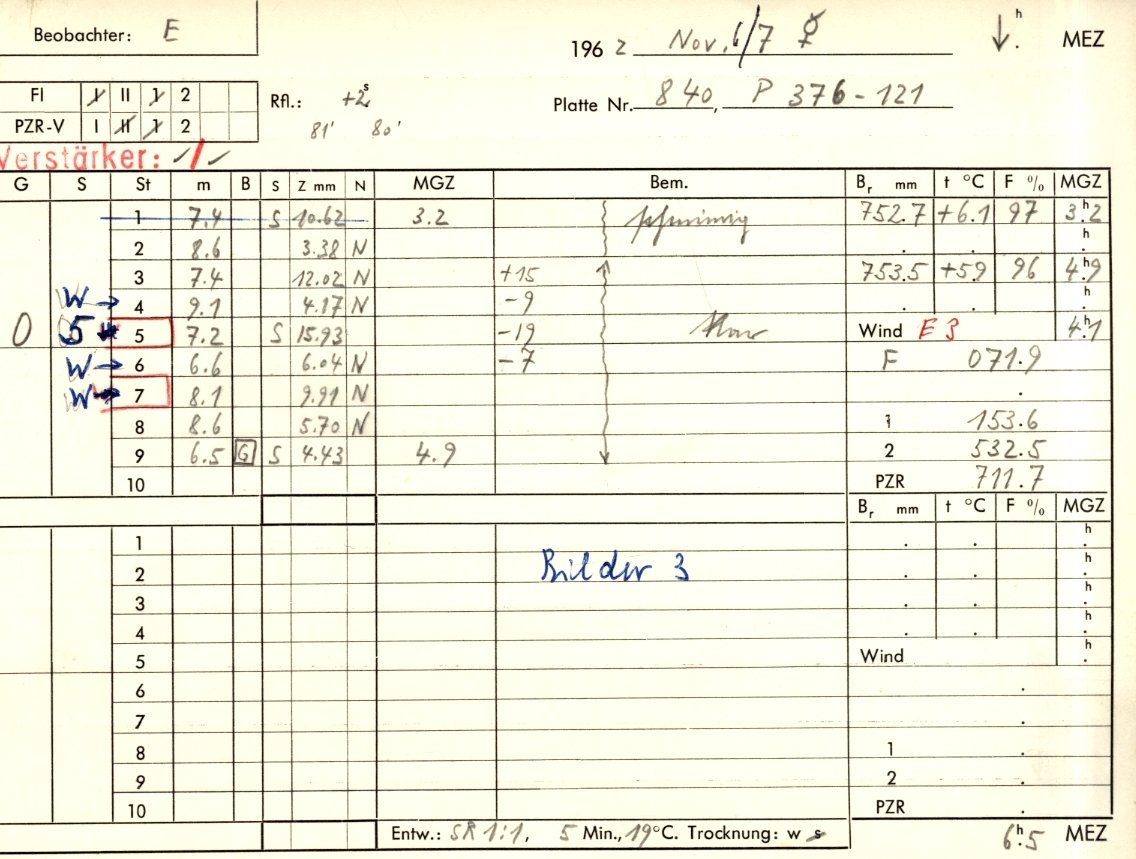 Beobachter: E
1962 Nov. 6/7 ☿ h . MEZ
FI I II 1 2
Rfl.: +2s
Platte Nr. 840, P 376-121
PZR-V I II 1 2
81' 80'
Verstärker: ✓/✓
G S St m B S Z mm N MGZ Bem. Br mm t °C F % MGZ
1 7.4 S 10.62 3.2 752.7 +6.1 97 3h2
2 8.6 3.38 N h .
3 7.4 12.02 N +15 753.5 +59 96 4h9
W → 4 9.1 4.17 N -9 h .
0 5 5 7.2 S 15.93 -19 klar Wind E 3 4h1
W → 6 6.6 6.04 N -7 F 071.9
W → 7 8.1 9.91 N .
8 8.6 5.70 N 1 153.6
9 6.5 G S 4.43 4.9 2 532.5
10 PZR 711.7
Br mm t °C F % MGZ
1 . . h .
2 Bilder 3 . . h .
3 . . h .
4 . . h .
5 Wind h .
6 .
7 .
8 1 .
9 2 .
10 PZR .
Entw.: SR 1:1, 5 Min., 19°C. Trocknung: w s 6h5 MEZ